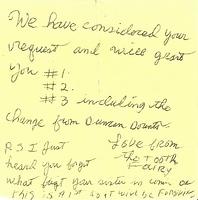 We have considered your
request and will grant
you #1.
#2.
#3 including the
change from Duncan Donuts.
Love from
the Tooth
Fairy
P.S I Just
heard you forgot
what your sister is
THIS IS A 1st so it will be FORGIVEN